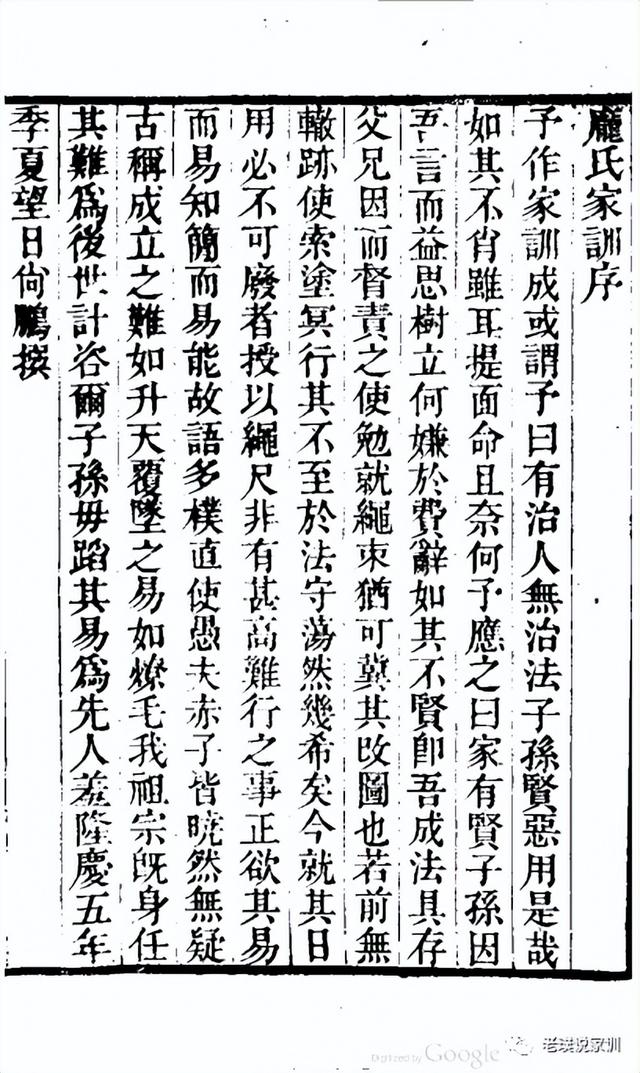 龐氏家訓序
予作家訓成或謂予曰有治人無治法子孫賢惡用是哉
如其不肖雖耳提面命且奈何予應之曰家有賢子孫因
吾言而益思樹立何嫌於費辭如其不賢卽吾成法具存
父兄因而督責之使勉就繩束猶可冀其改圖也若前無
轍跡使索塗冥行其不至於法守蕩然幾希矣今就其日
用必不可廢者授以繩尺非有甚高難行之事正欲其易
而易知簡而易能故語多樸直使愚夫赤子皆曉然無疑
古稱成立之難如升天覆墜之易如燎毛我祖宗旣身任
其難爲後世計咨爾子孫毋蹈其易爲先人羞隆慶五年
季夏望日尙鵬撰
Digitized by Google
老琪说家训